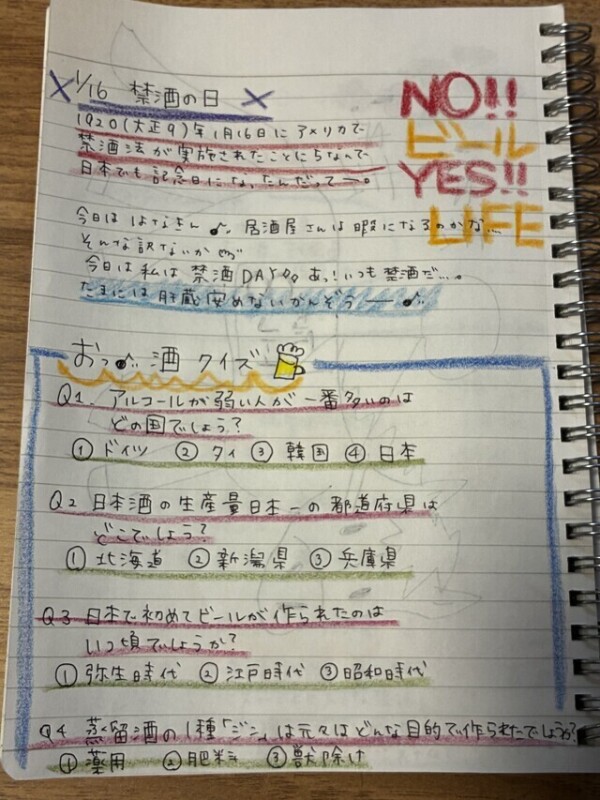 1/16 禁酒の日
NO!!
ビール
YES!!
LIFE
1920(大正9)年1月16日にアメリカで
禁酒法が実施されたことにちなんで
日本でも記念日になったんだってー。
今日は はなきん♪。居酒屋さんは暇になるのかな...
そんな訳ないか
今日は私は禁酒DAY。あっ!いつも禁酒だ...。
たまには肝臓安めないかんぞうー♪
おっ♪酒クイズ
Q1. アルコールが弱い人が一番多いのは
どの国でしょう?
① ドイツ ② タイ ③ 韓国 ④ 日本
Q2 日本酒の生産量日本一の都道府県は
どこでしょう?
① 北海道 ② 新潟県 ③ 兵庫県
Q3 日本で初めてビールが作られたのは
いつ頃でしょうか?
① 弥生時代 ② 江戸時代 ③ 昭和時代
Q4 蒸留酒の1種「ジン」は元々はどんな目的で作られたでしょうか?
① 薬用 ② 肥料 ③ 獣除け